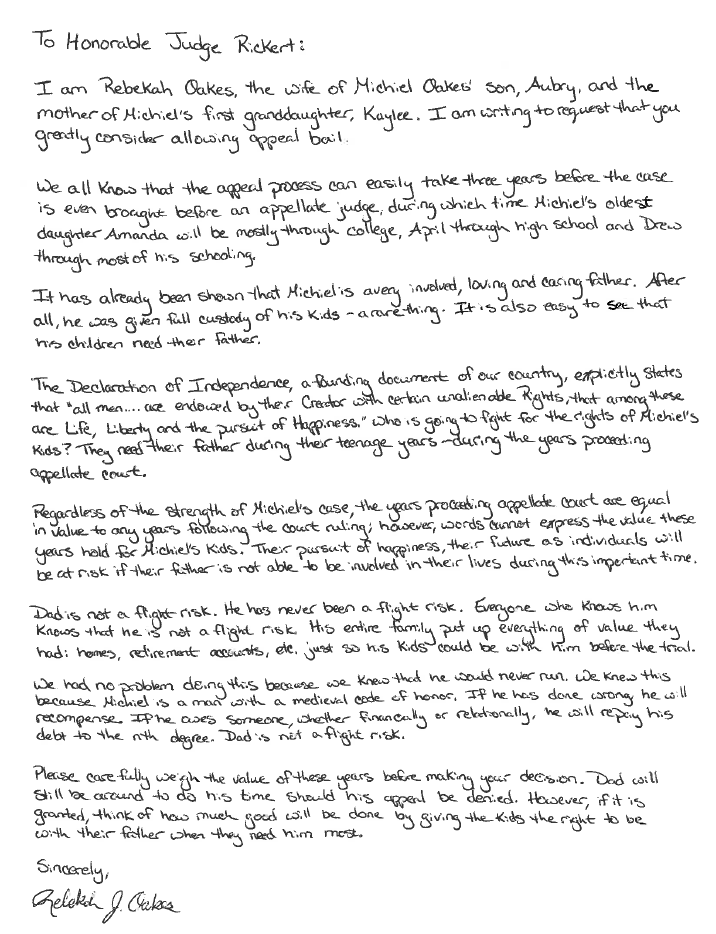 To Honorable Judge Rickert:
I am Rebekah Oakes, the wife of Michiel Oakes' son, Aubry, and the
mother of Michiel's first granddaughter, Kaylee. I am writing to request that you
greatly consider allowing appeal bail.
We all know that the appeal process can easily take three years before the case
is even brought before an appellate judge, during which time Michiel's oldest
daughter Amanda will be mostly through college, April through high school and Drew
through most of his schooling.
It has already been shown that Michiel is a very involved, loving and caring father. After
all, he was given full custody of his kids - a rare thing. It is also easy to see that
his children need their father.
The Declaration of Independence, a founding document of our country, explicitly states
that "all men.... are endowed by their Creator with certain unalienable Rights, that among these
are Life, Liberty and the pursuit of Happiness." Who is going to fight for the rights of Michiel's
kids? They need their father during their teenage years - during the years proceeding
appellate court.
Regardless of the strength of Michiel's case, the years proceeding appellate court are equal
in value to any years following the court ruling; however, words cannot express the value these
years hold for Michiel's kids. Their pursuit of happiness, their future as individuals will
be at risk if their father is not able to be involved in their lives during this important time.
Dad is not a flight risk. He has never been a flight risk. Everyone who knows him
knows that he is not a flight risk. His entire family put up everything of value they
had: homes, retirement accounts, etc. just so his kids could be with him before the trial.
We had no problem doing this because we knew that he would never run. We knew this
because Michiel is a man with a medieval code of honor. If he has done wrong he will
recompense. If he owes someone, whether financially or relationally, he will repay his
debt to the nth degree. Dad is not a flight risk.
Please carefully weigh the value of these years before making your decision. Dad will
still be around to do his time should his appeal be denied. However, if it is
granted, think of how much good will be done by giving the kids the right to be
with their father when they need him most.
Sincerely,
Rebekah J. Oakes